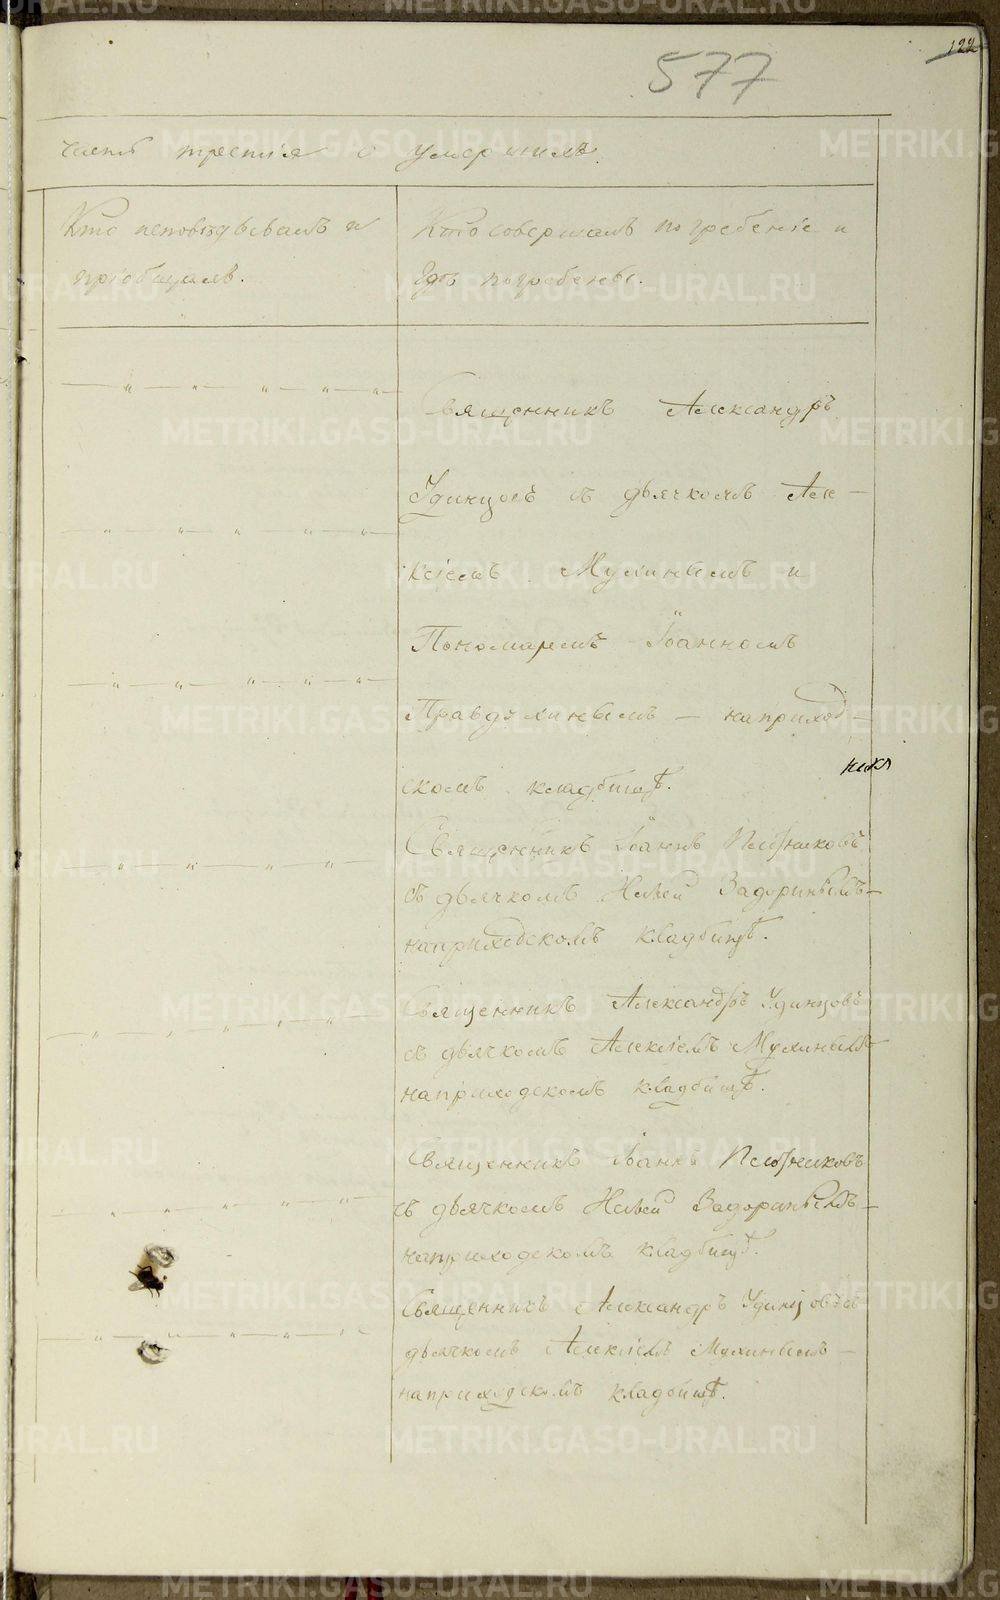 122
577
часть третія о умершихъ.
Кто исповѣдывалъ и
пріобщалъ.
Кто совершалъ погребеніе и
гдѣ погребены.
Священникъ Александръ
Удинцовъ съ дьячкомъ Але-
ксіемъ Мухинымъ и
Пономаремъ Іоанномъ
Правдухинымъ - на приход-
скомъ кладбищѣ.
Священникъ Іоаннъ
съ дьячкомъ Задоринымъ-
на приходскомъ кладбищѣ.
Священникъ Александръ Удинцовъ
съ дьячкомъ Алексіемъ Мухинымъ
на приходскомъ кладбищѣ.
Священникъ Іоаннъ
съ дьячкомъ Задоринымъ-
на приходскомъ кладбищѣ.
Священникъ Александръ Удинцовъ съ
дьячкомъ Алексіемъ Мухинымъ -
на приходскомъ кладбищѣ.
METRIKI.GASO-URAL.RU